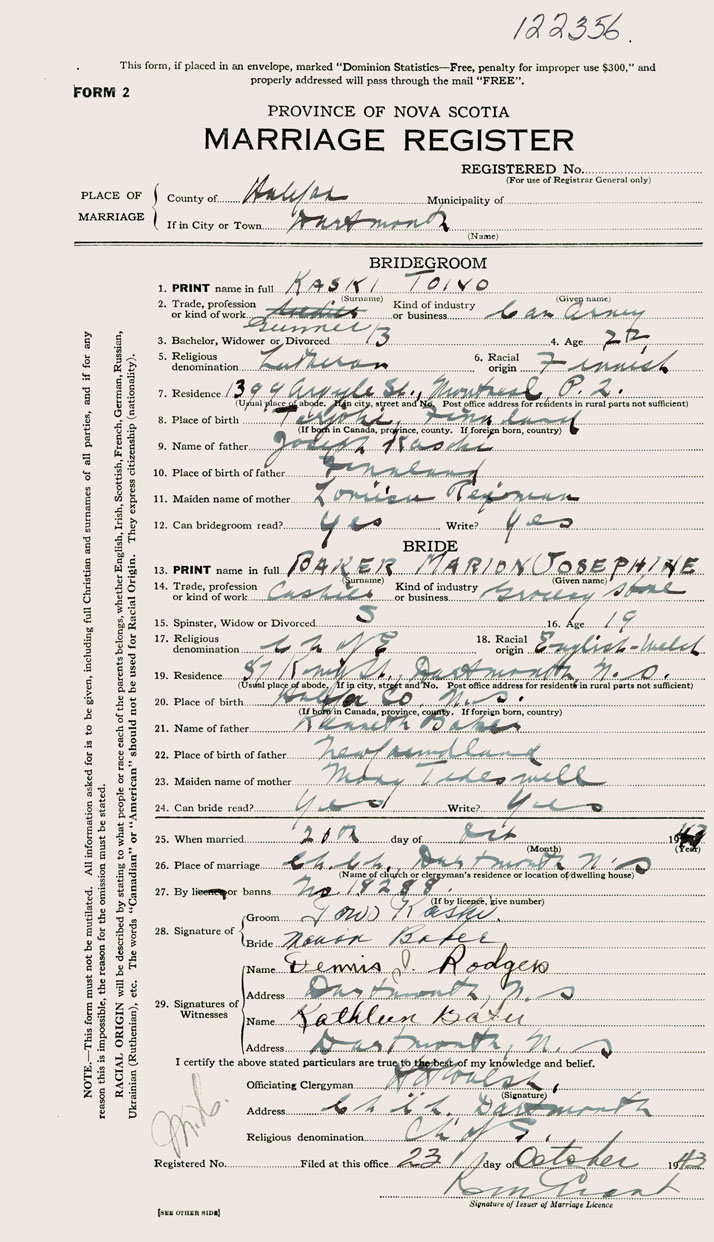 122356.
This form, if placed in an envelope, marked "Dominion Statistics—Free, penalty for improper use $300," and
properly addressed will pass through the mail "FREE".
FORM 2
PROVINCE OF NOVA SCOTIA
MARRIAGE REGISTER
REGISTERED No.
(For use of Registrar General only)
PLACE OF MARRIAGE
County of Halifax Municipality of
If in City or Town Dartmouth
(Name)
BRIDEGROOM
1. PRINT name in full KASKI TOIVO
(Surname) (Given name)
2. Trade, profession or kind of work Soldier Gunner Kind of industry or business Can Army
3. Bachelor, Widower or Divorced B 4. Age 22
5. Religious denomination Lutheran 6. Racial origin Finnish
7. Residence 1399 Argyle St., Montreal P.Q.
(Usual place of abode. If in city, street and No. Post office address for residents in rural parts not sufficient)
8. Place of birth Finland
(If born in Canada, province, county. If foreign born, country)
9. Name of father Joseph Kaski
10. Place of birth of father Finland
11. Maiden name of mother
12. Can bridegroom read? Yes Write? Yes
BRIDE
13. PRINT name in full BAKER MARION JOSEPHINE
(Surname) (Given name)
14. Trade, profession or kind of work Cashier Kind of industry or business Grocery Store
15. Spinster, Widow or Divorced S 16. Age 19
17. Religious denomination Ch of E 18. Racial origin English-Welsh
19. Residence 87 King St., Dartmouth, N.S.
(Usual place of abode. If in city, street and No. Post office address for residents in rural parts not sufficient)
20. Place of birth Halifax Co. N.S.
(If born in Canada, province, county. If foreign born, country)
21. Name of father Kenneth Baker
22. Place of birth of father Newfoundland
23. Maiden name of mother Mary Tideswell
24. Can bride read? Yes Write? Yes
25. When married 20th day of Oct 1943
(Month) (Year)
26. Place of marriage Ch. Ch. Dartmouth N.S
(Name of church or clergyman's residence or location of dwelling house)
27. By licence or banns No. 19288
(If by licence, give number)
28. Signature of
Groom Toivo Kaski.
Bride Marion Baker
29. Signatures of Witnesses
Name Dennis J. Rodgers
Address Dartmouth, N.S
Name Kathleen Baker
Address Dartmouth, N.S
I certify the above stated particulars are true to the best of my knowledge and belief.
Officiating Clergyman Walsh
(Signature)
Address Ch. Ch. Dartmouth
Religious denomination Ch of E.
Registered No. Filed at this office 23 day of October 1943
Grant
Signature of Issuer of Marriage Licence
[SEE OTHER SIDE]
NOTE.—This form must not be mutilated. All information asked for is to be given, including full Christian and surnames of all parties, and if for any
reason this is impossible, the reason for the omission must be stated.
RACIAL ORIGIN will be described by stating to what people or race each of the parents belongs, whether English, Irish, Scottish, French, German, Russian,
Ukrainian (Ruthenian), etc. The words "Canadian" or "American" should not be used for Racial Origin. They express citizenship (nationality).